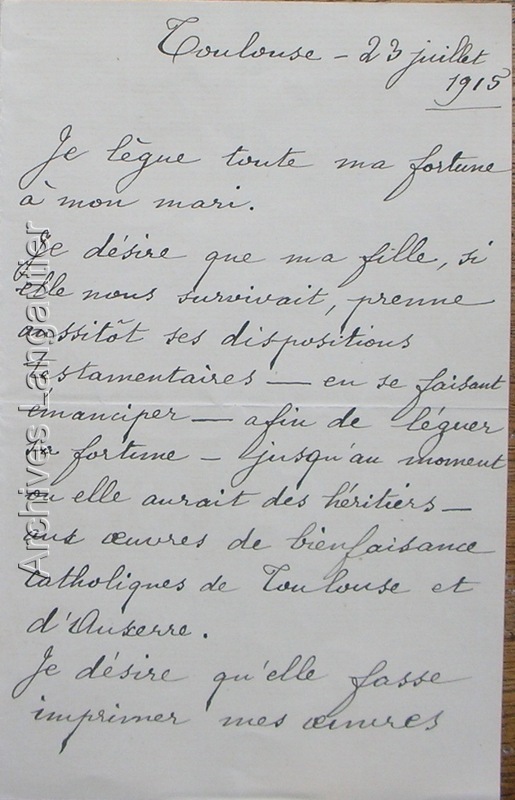 Toulouse - 23 juillet
1915
Je lègue toute ma fortune
à mon mari.
Je désire que ma fille, si
elle nous survivait, prenne
aussitôt ses dispositions
testamentaires — en se faisant
émanciper — afin de léguer
sa fortune - jusqu'au moment
où elle aurait des héritiers —
aux œuvres de bienfaisance
catholiques de Toulouse et
d'Auxerre.
Je désire qu'elle fasse
imprimer mes œuvres
Archives Langautier